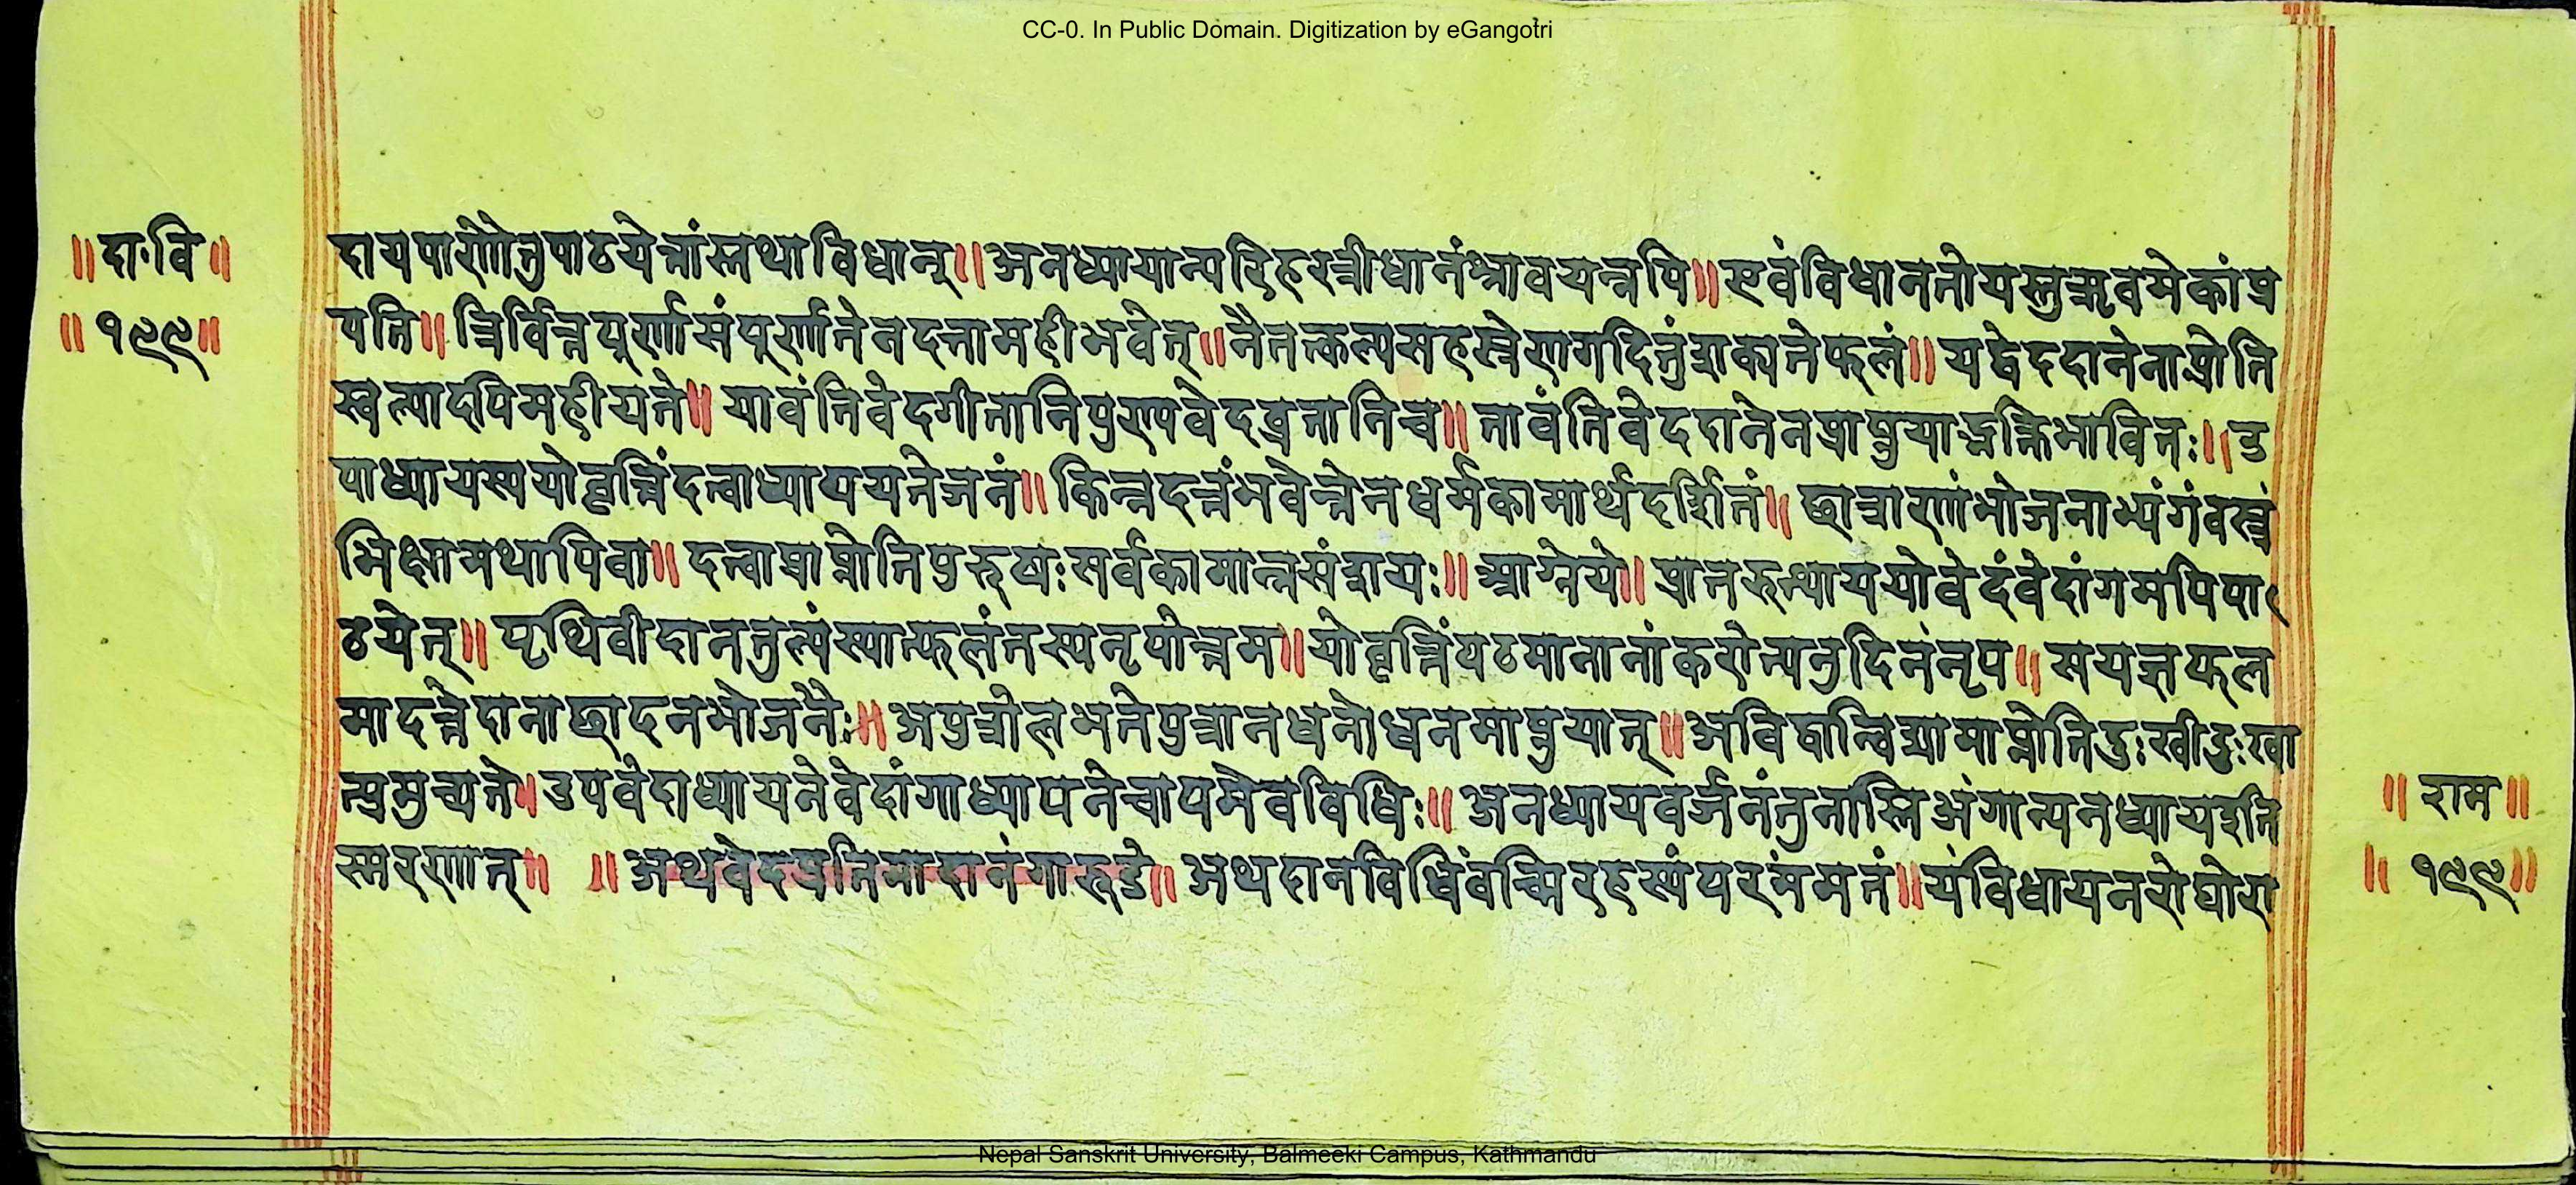 CC-0. In Public Domain. Digitization by eGangotri
॥दा॰वि॥
॥१९९॥
दायपारणेतुपाठयेत्तांस्तथाविधान्॥अनध्यायान्परिहरन्नीधानंश्रावयन्नपि॥एवंविधानतोयस्तु मेकांप्र
पति॥ पूर्णासंपूर्णातेनदत्तामहीभवेत्॥नैतत्कल्पसहस्रेणगदितुंशक्यतेफलं॥यद्वेददानेनाप्नोति
स्वल्पादपिमहीयते॥यावंतिवेदगीतानिपुण्यवेदव्रतानिच॥तावंतिवेददानेनप्राप्नुया भावितः॥उ
पाध्यायस्ययोवृत्तिंदत्वाध्यापयतेजनं॥किन्नदत्तंभवेत्तेनधर्मकामार्थदर्शितं॥छात्राणांभोजनाभ्यंगंवस्त्रं
भिक्षामथापिवा॥दत्वाप्राप्नोतिपुरुषःसर्वकामान्नसंशयः॥आग्नेये॥प्रातरुत्थाययोवेदंवेदांगमपिपा
ठयेत्॥पृथिवीदानतुल्यंस्यात्फलंतस्यनृपोत्तम॥योवृत्तिंपठमानानांकरोत्यनुदिनंनृप॥सयज्ञफल
मादत्तेदानाछादनभोजनैः॥अपुत्रोलभतेपुत्रानधनोधनमाप्नुयात्॥अविद्वान्विद्यामाप्नोतिदुःखीदुःखा
त्प्रमुच्यते॥उपवेदाध्यायनेवेदांगाध्यापनेचायमेवविधिः॥अनध्यायवर्जनंतुनास्तिअंगान्यनध्यायइति
स्मरणात्॥ ॥अथवेदप्रतिमादानंगारुडे॥अथदानविधिंवच्मिरहस्यंपरमंमतं॥यंविधायनरोघोरा
॥राम॥
॥१९९॥
Nepal Sanskrit University, Balmeeki Campus, Kathmandu